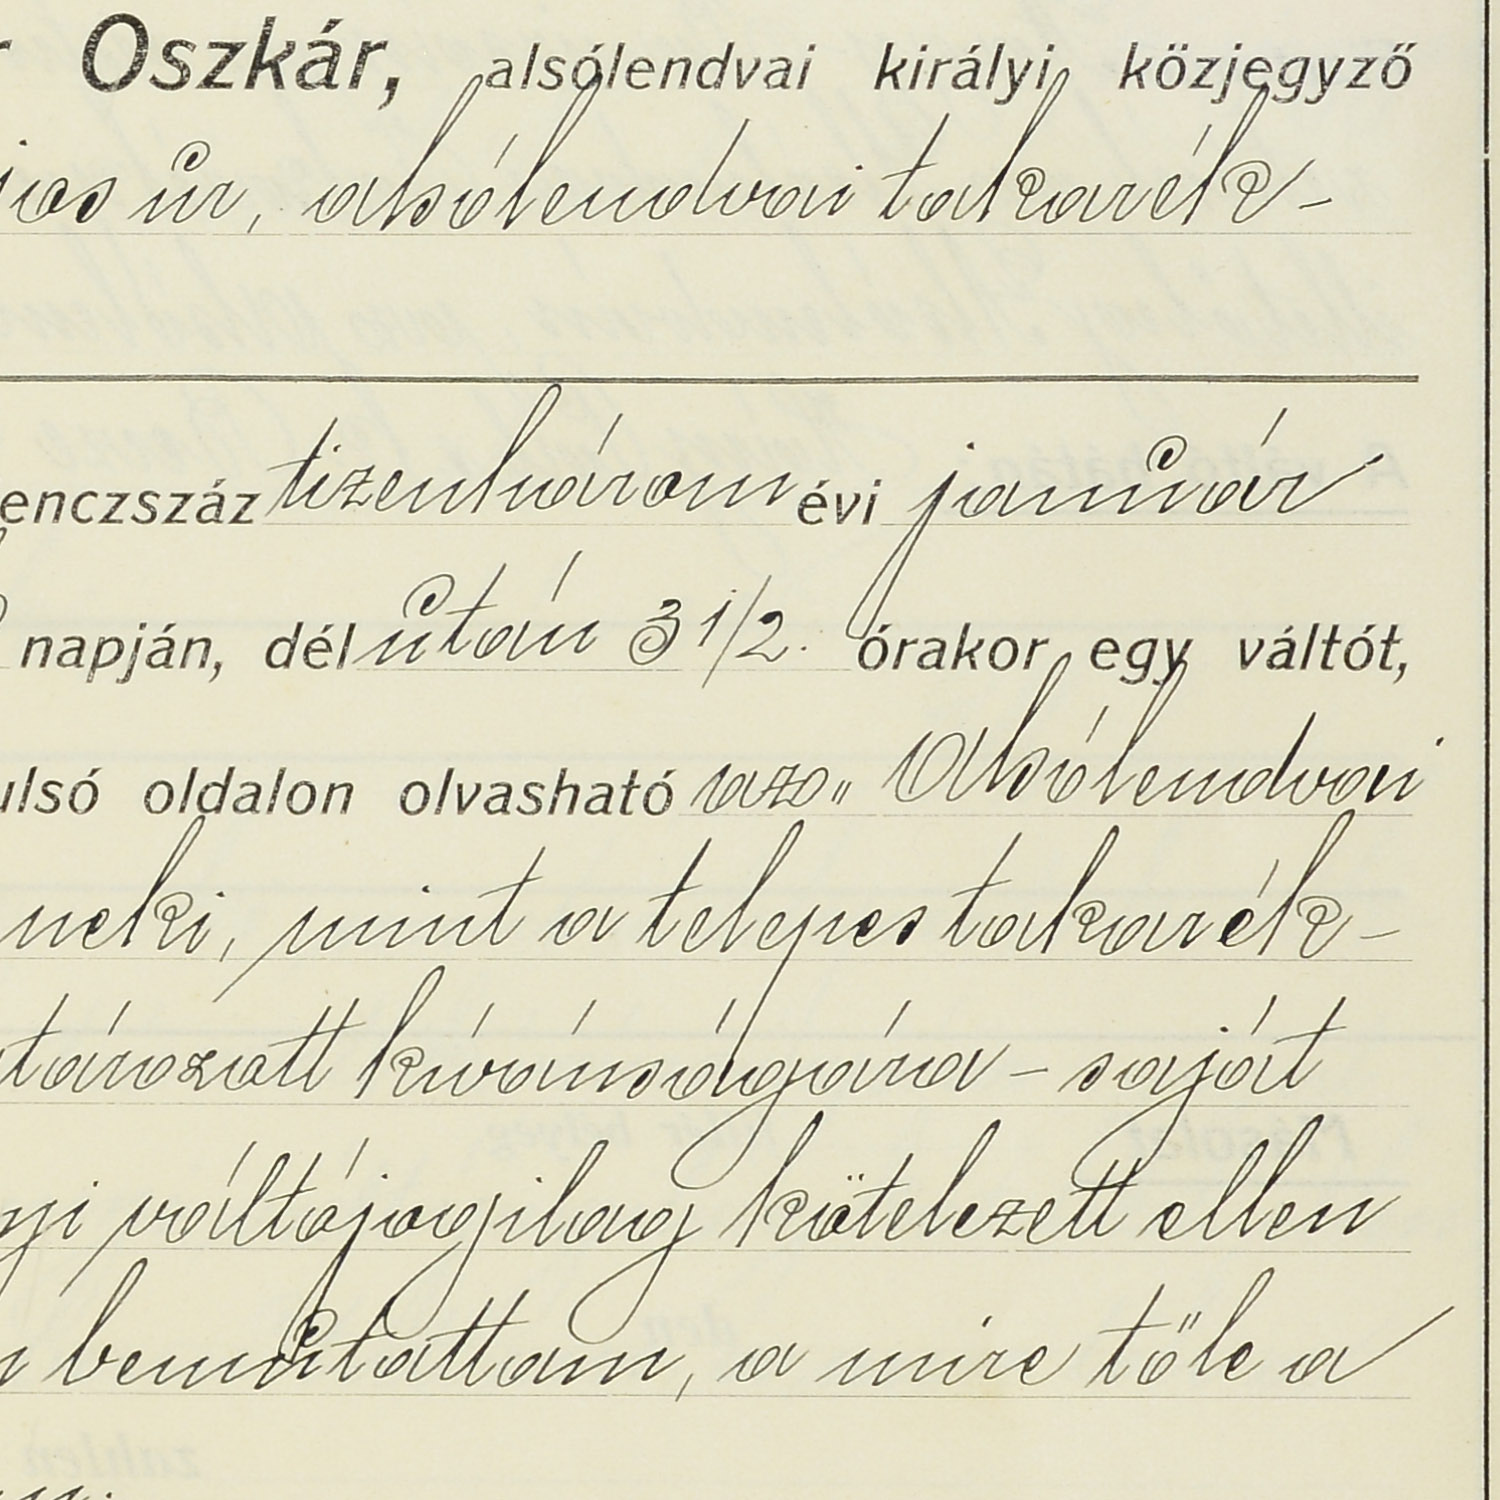 Oszkár, alsólendvai királyi közjegyző
úr, alsólendvai takarék-
enczszáz tizenhárom évi január
napján, délután 3 1/2. órakor egy váltót,
ulsó oldalon olvasható az „Alsólendvai
neki, mint a telepes takarék-
tározatt kívánságára - saját
váltójogilag kötelezett ellen
bemutattam, a mire tőle a